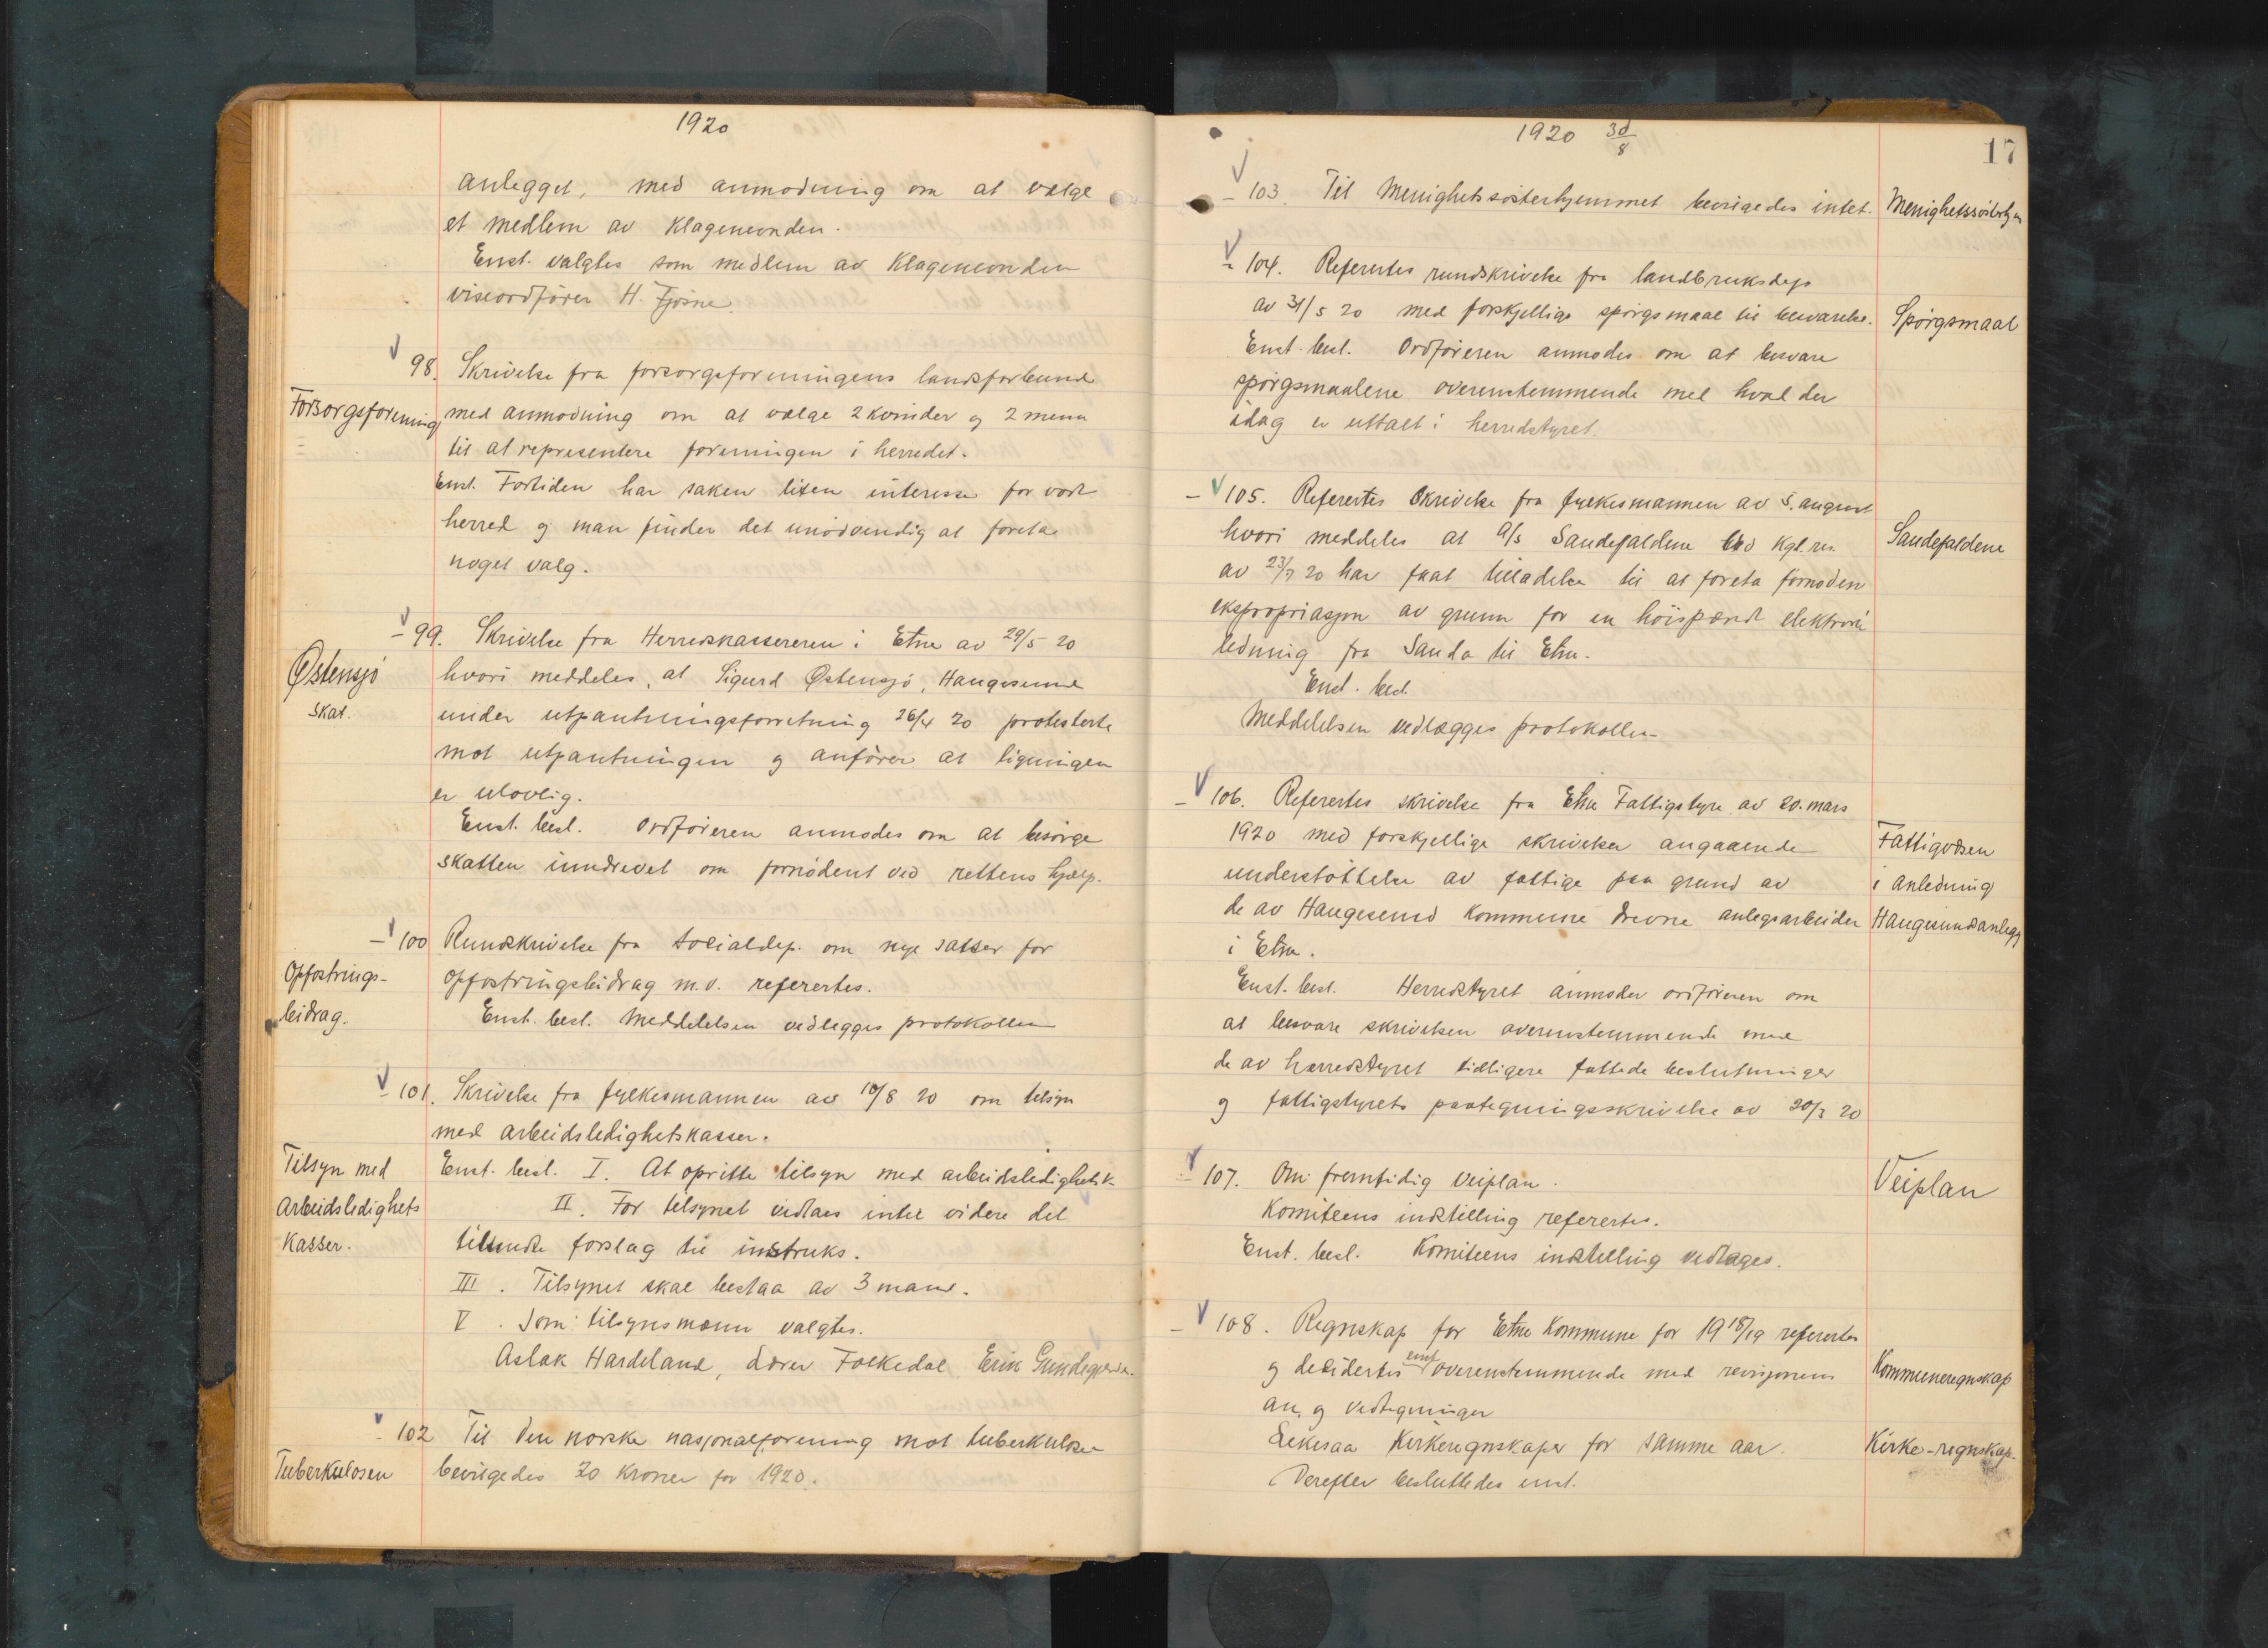 1920
anlegget, med anmodning om at vælge
et medlem av Klagenevnden.
Enst. valgtes som medlem av Klagenevnden
viseordfører H. Fjøsne.
98. Skrivelse fra forsorgsforeningens landsforbund
Forsorgsforening med anmodning om at vælge 2 kvinder og 2 menn
til at representere foreningen i herredet.
Enst. Fortiden har saken liten interesse for vort
herred og man finder det unødvendig at foreta
noget valg.
- 99. Skrivelse fra Herredskassereren i Etne av 29/5 20
Østensjø hvori meddeles, at Sigurd Østensjø, Haugesund
Skat. under utpantningsforretning 26/4 20 protesterte
mot utpantningen og anfører at ligningen
er ulovlig.
Enst. besl. Ordføreren anmodes om at besørge
skatten inndrevet om fornødent ved rettens hjælp.
- 100 Rundskrivelse fra Socialdep. om nye satser for
Opfostrings- opfostringsbidrag m.v. referertes.
bidrag. Enst. besl. Meddelelsen vedlegges protokollen
- 101. Skrivelse fra fylkesmannen av 10/8 20 om tilsyn
med arbeidsledighetskasser.
Tilsyn med Enst. besl. I. At oprette tilsyn med arbeidsledighetsk.
Arbeidsledighets II. For tilsynet vedtaes intil videre det
Kasser. tilsendte forslag til instruks.
III. Tilsynet skal bestaa av 3 mann.
V. Som tilsynsmænn valgtes.
Aslak Hardeland, Lærer Folkedal, Erik
- 102 Til Den norske nasjonalforening mot tuberkulose
Tuberkulosen bevilgedes 20 kroner for 1920.
1920 30/8
17
- 103. Til Menighetssøsterhjemmet bevilgedes intet. Menighetssøsterhjem
- 104. Referertes rundskrivelse fra landbruksdep
av 31/5 20 med forskjellige spørgsmaal til besvarelse. Spørgsmaal
Enst. besl. Ordføreren anmodes om at besvare
spørgsmaalene overenstemmende med hvad der
idag er uttalt i herredstyret.
- 105. Referertes Skrivelse fra fylkesmannen av 5. august
hvori meddeles at A/s Saudefaldene ved Kgl. res. Saudefaldene
av 23/7 20 har faat tilladelse til at foreta fornøden
ekspropriasjon av grunn for en høispændt elektrisk
ledning fra Sauda til Etne.
Enst. besl.
Meddelelsen vedlægges protokollen
- 106. Referertes skrivelse fra Etne Fattigstyre av 20. mars
1920 med forskjellige skrivelser angaaende Fattigvæsen
understøttelse av fattige paa grund av i anledning
de av Haugesund Kommune drevne anlegsarbeider Haugesundsanlegg
i Etne.
Enst. besl. Herredstyret anmoder ordføreren om
at besvare skrivelsen overenstemmende med
de av herredstyret tidligere fattede beslutninger
og fattigstyrets paategningsskrivelse av 20/3 20
- 107. Om fremtidig veiplan. Veiplan
Komiteens indstilling referertes.
Enst. besl. Komiteens indstilling vedtages.
- 108. Regnskap for Etne Kommune for 1918/19 referertes
og desidertes enst overenstemmende med revisjonens Kommuneregnskap
an. og vedtegninger
Likesaa Kirkeregnskaper for samme aar. Kirke-regnskap.
Derefter besluttedes enst.